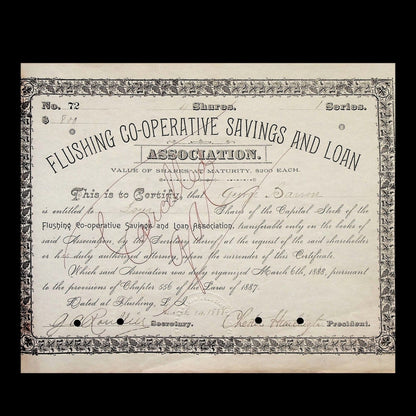 No. 72 4 Shares. 1 Series.
$ 800
FLUSHING CO-OPERATIVE SAVINGS AND LOAN
ASSOCIATION.
VALUE OF SHARES AT MATURITY, $200 EACH.
This is to Certify, that George
is entitled to Four Shares of the Capital Stock of the
Flushing Co-operative Savings and Loan Association, transferable only on the books of
said Association, by the Secretary thereof at the request of the said shareholder
or his duly authorized attorney upon the surrender of this Certificate.
Which said Association was duly organized March 6th, 1888, pursuant
to the provisions of Chapter 556 of the Laws of 1887.
Dated at Flushing, L. I.
1888
Secretary. President.
Cancelled